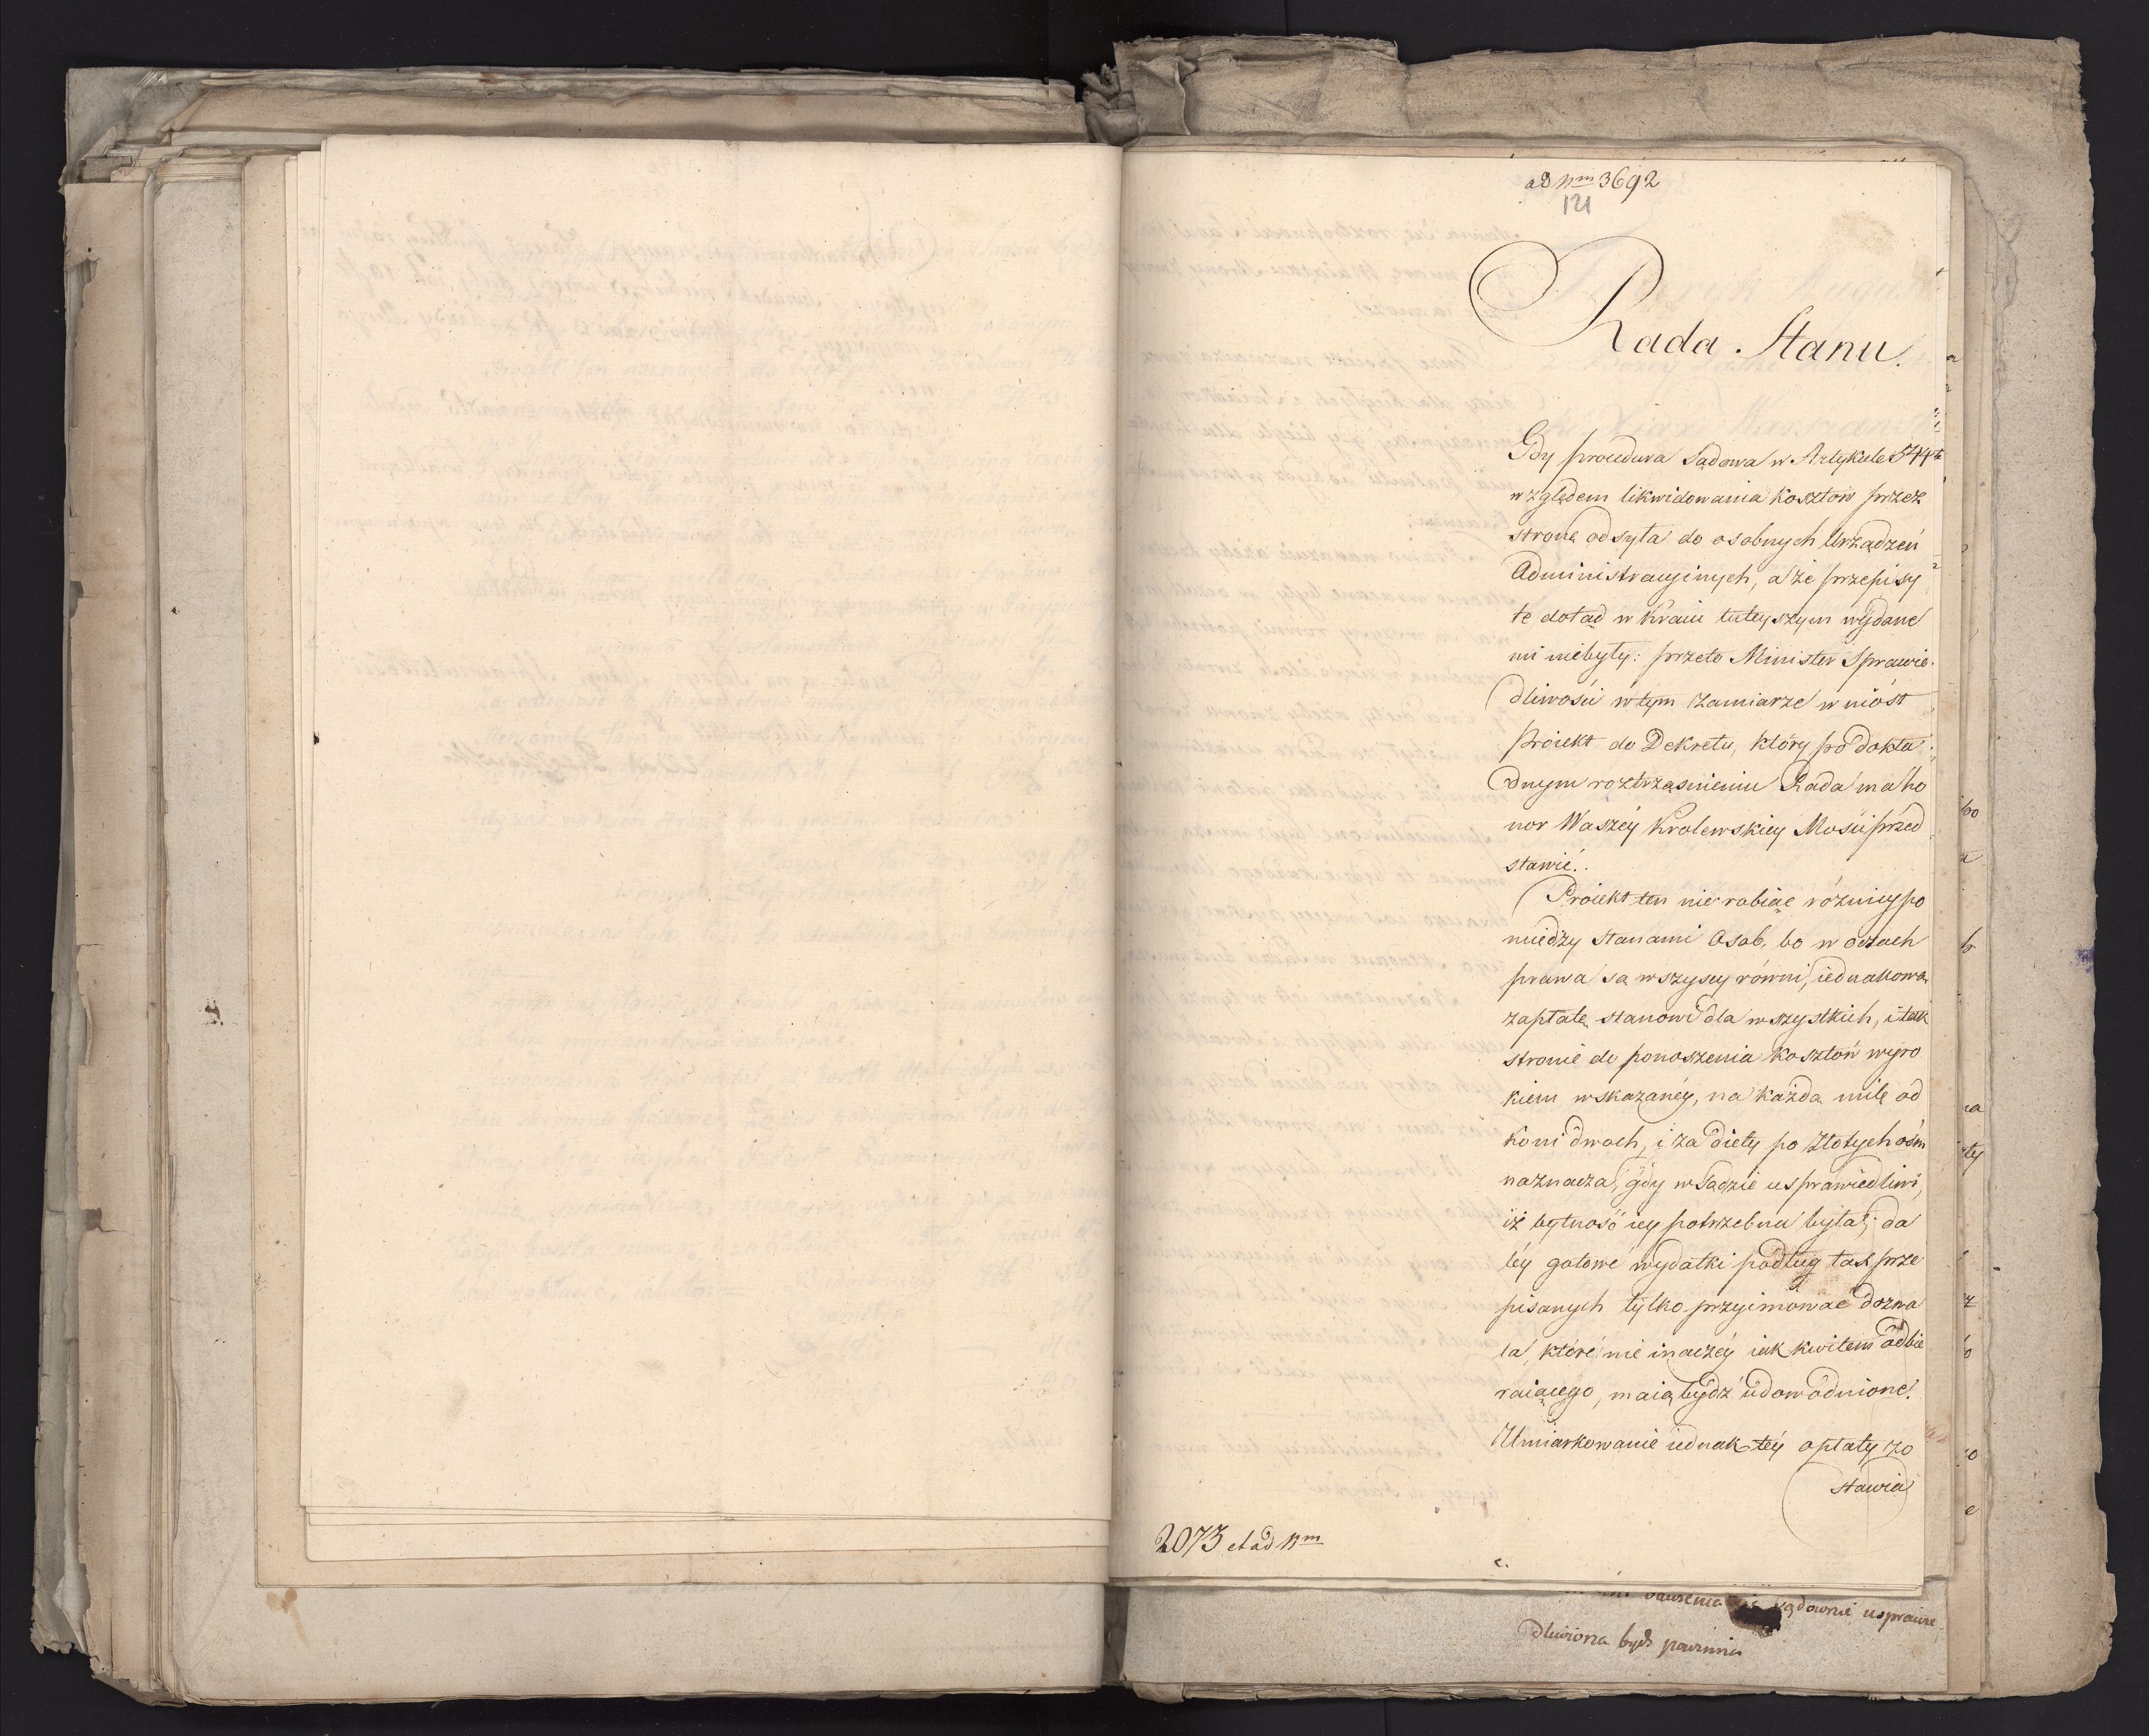 ad Nm 3692
121
Rada Stanu.
Gdy procedura Sądowa w Artykule 544
względem likwidowania kosztów przez
stronę odsyła do osobnych Urządzeń
Administracyinych, a że przepisy
te dotąd w Kraiu tuteyszym wydane
mi niebyły: przeto Minister Sprawie-
dliwości w tym zamiarze wniósł
proiekt do Dekretu, który po dokła-
dnym roztrząsnieniu Rada ma ho
nor Waszéy Krolewskiey Mości przed
stawić.
Proiekt ten nie robiąc różnicy po
między stanami Osob, bo w oczach
prawa są wszyscy równi, iednakową
zapłatę stanowi dla wszystkich, i tak
stronie do ponoszenia kosztów wyro
kiem wskazanéy, na każdą milę od
koni dwoch, i za diety po Złotych ośm
naznacza, gdy w Sądzie usprawiedliwi,
iż bytność iey potrzebna była; da
léy gotowe wydatki podług tax prze
pisanych tylko przyimować dozwa
la, które nie inaczéy iak kwitem odbie
raiącego, maią bydź udowodnione.
Umiarkowanie iednak téy opłaty zo
stawia
2073 et ad Nm
sądownie usprawie
dliwiona bydź powinna